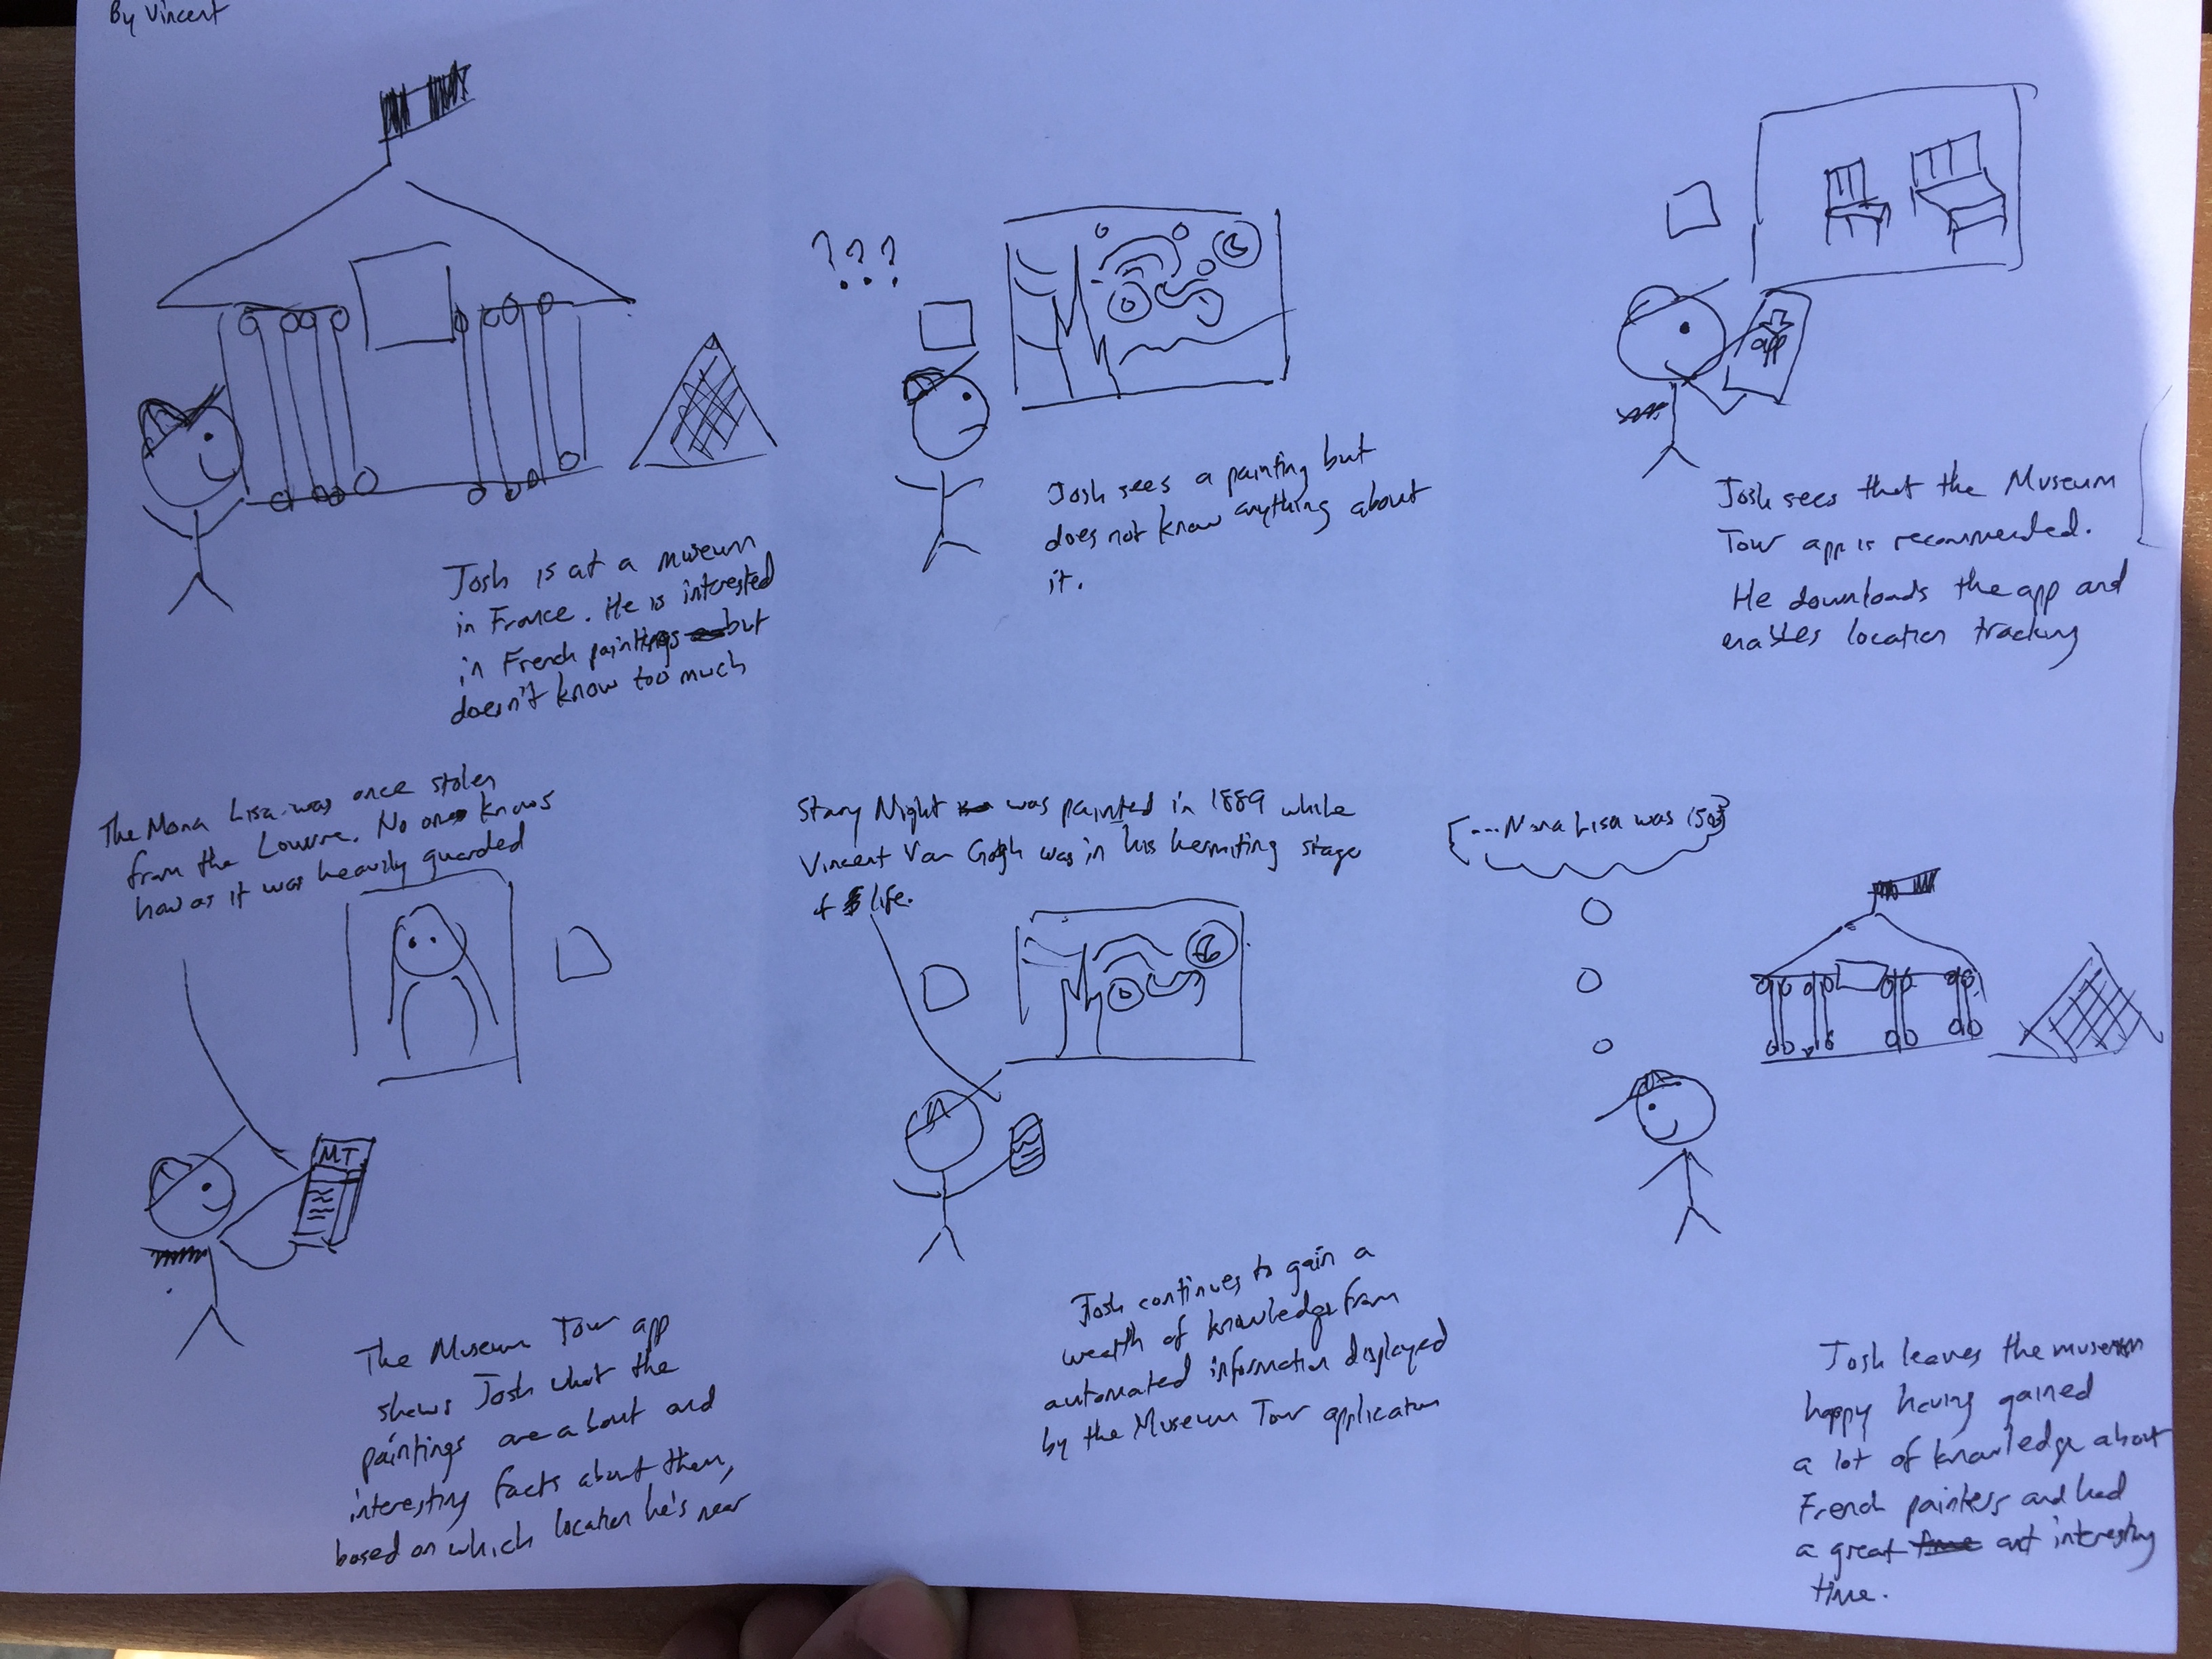 By Vincent
Josh is at a museum
in France. He is interested
in French paintings but
doesn't know too much
???
Josh sees a painting but
does not know anything about
it.
app
Josh sees that the Museum
Tour app is recommended.
He downloads the app and
enables location tracking
The Mona Lisa was once stolen
from the Louvre. No one knows
how as it was heavily guarded
MT
The Museum Tour app
shows Josh what the
paintings are about and
interesting facts about them,
based on which location he's near
Stary Night was painted in 1889 while
Vincent Van Gogh was in his hermiting stage
of life.
Josh continues to gain a
wealth of knowledge from
automated information displayed
by the Museum Tour application
...Mona Lisa was 1503
Josh leaves the museum
happy having gained
a lot of knowledge about
French painters and had
a great and interesting
time.